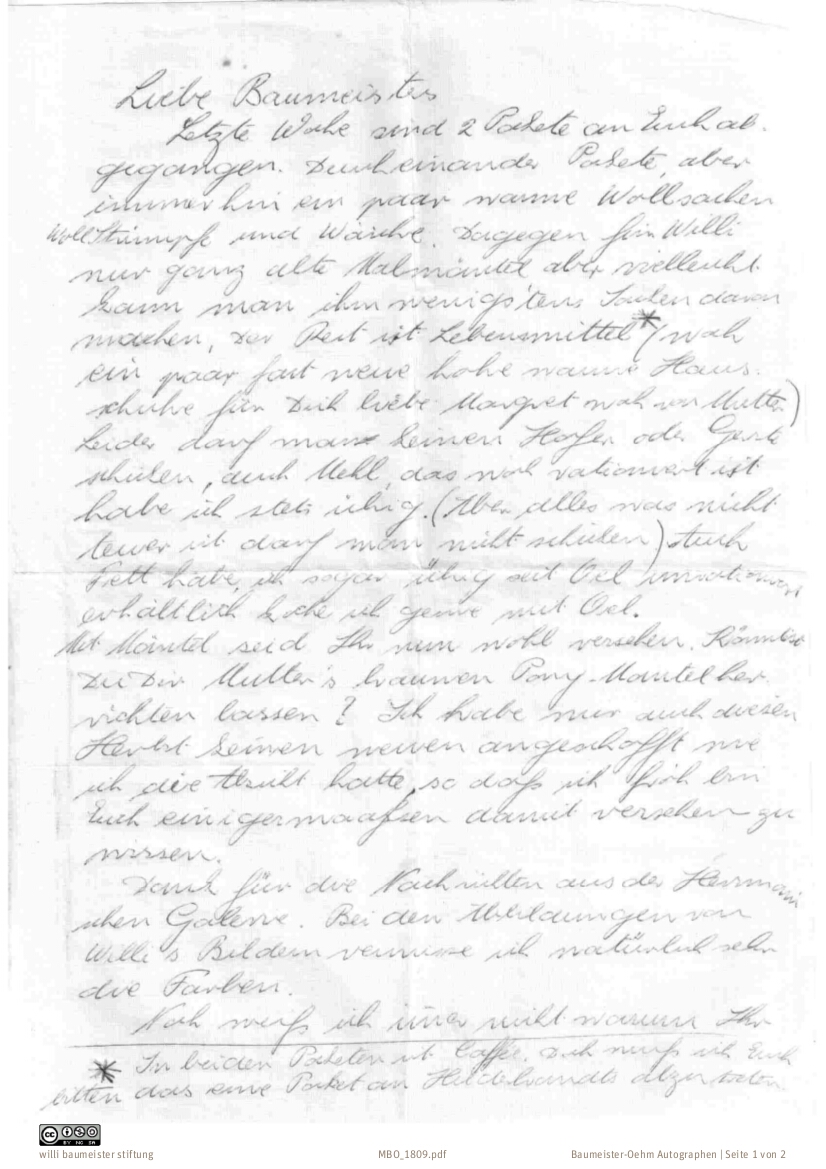 Liebe Baumeisters
Letzte Woche sind 2 Pakete an Euch ab-
gegangen. Durcheinander Pakete, aber
immerhin ein paar warme Wollsachen
WollStrümpfe und Wäsche. Dagegen für Willi
nur ganz alte Malmäntel aber vielleicht
kann man ihm wenigstens Socken davon
machen, der Rest ist Lebensmittel * (noch
ein paar fast neue hohe warme Haus-
schuhe für Dich liebe Margret noch von Mutter)
Leider darf man keinen Hafer oder Gerste
schicken, auch Mehl, das noch rationiert ist
habe ich stets übrig. (Aber alles was nicht
teuer ist darf man nicht schicken) Auch
Fett habe ich sogar übrig seit Oel unrationiert
erhältlich koche ich gerne mit Oel.
Mit Mäntel seid Ihr nun wohl versehen. Könntest
Du Dir Mutter's braunen Pony-Mantel her-
richten lassen? Ich habe mir auch diesen
Herbst keinen neuen angeschafft wie
ich die Absicht hatte, so daß ich froh bin
Euch einigermaaßen damit versehen zu
wissen.
Dank für die Nachrichten aus der Herrmann
schen Galerie. Bei den Abbildungen von
Willi's Bildern vermisse ich natürlich sehr
die Farben.
Noch weiß ich immer nicht warum Ihr
* In beiden Paketen ist Caffee. muß ich Euch
bitten das eine Paket an Hildebrandts abzutreten
willi baumeister stiftung MBO_1809.pdf Baumeister-Oehm Autographen | Seite 1 von 2
cc BY NC SA